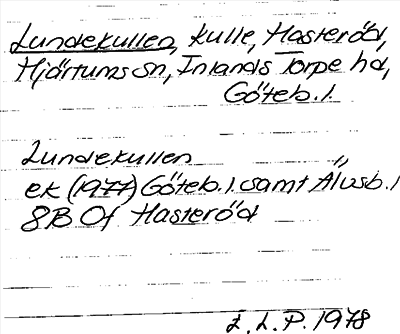 Lundekullen, kulle, Hasteröd,
Hjärtums sn, Inlands Torpe hd,
Göteb. l.
Lundekullen
ek (1977) Göteb. l. samt Älvsb. l
8B 0f Hasteröd
L. L. P. 1978